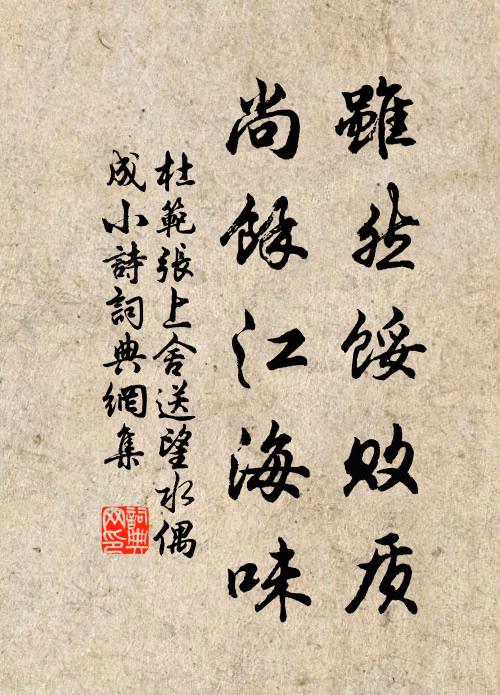 雖然餒败质
尚餘江海味
杜範張上舍送望水偶
成小詩詞典網集
詞典
网印